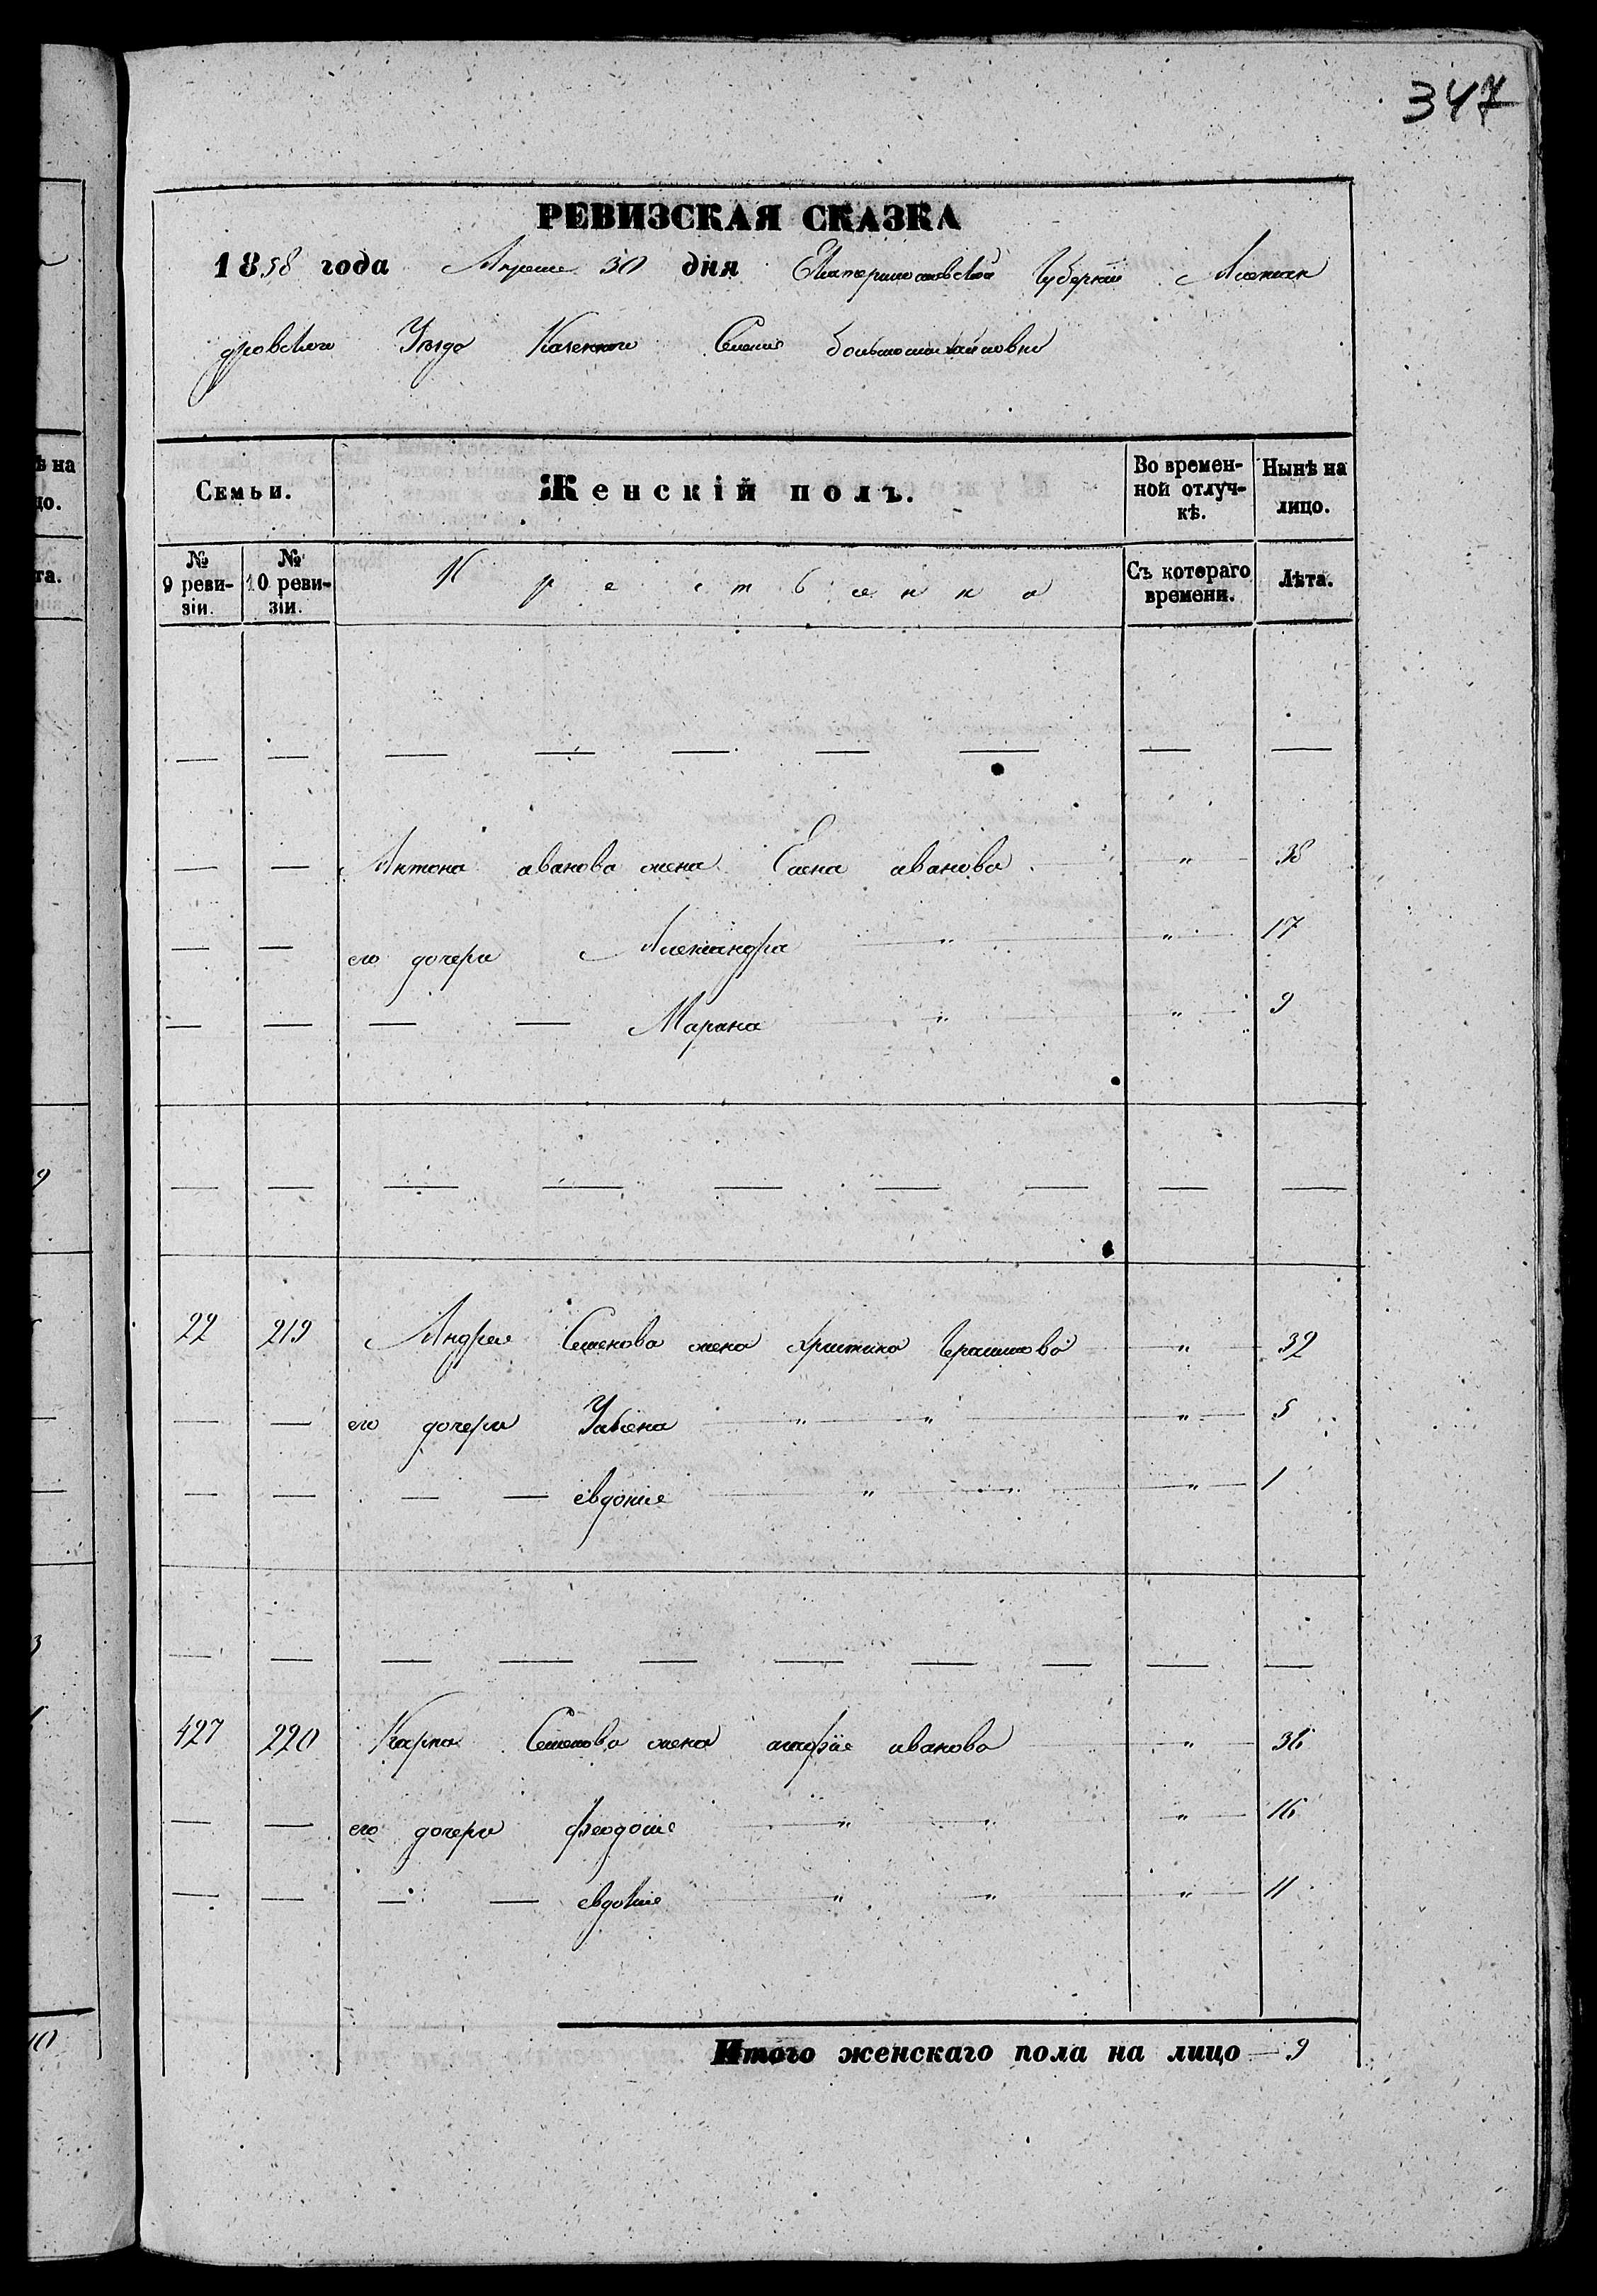 347
РЕВИЗСКАЯ СКАЗКА
1858 года Апреля 30 дня Екатеринославской Губернии Алексан
дровского Уезда Казенного Селения большомихайловки
Семьи. Женскій полъ. Во времен- Нынѣ на
ной отлуч- лицо.
кѣ.
№ № Крестьянки Съ котораго Лѣта.
9 реви- 10 реви- времени.
зіи. зіи.
Антона иванова жена Елена иванова " 38
его дочери Александра " " 17
Марина " " 9
22 219 Андрея Семенова жена христина Герасимова " 32
его дочери Ульяна " " " 5
евдокия " " " 1
427 220 Карпа Семенова жена агафия иванова " 36
его дочери феодосия " " " 16
евдокия " " " 11
Итого женскаго пола на лицо 9
ѣ на
цо.
та.
9
3
10